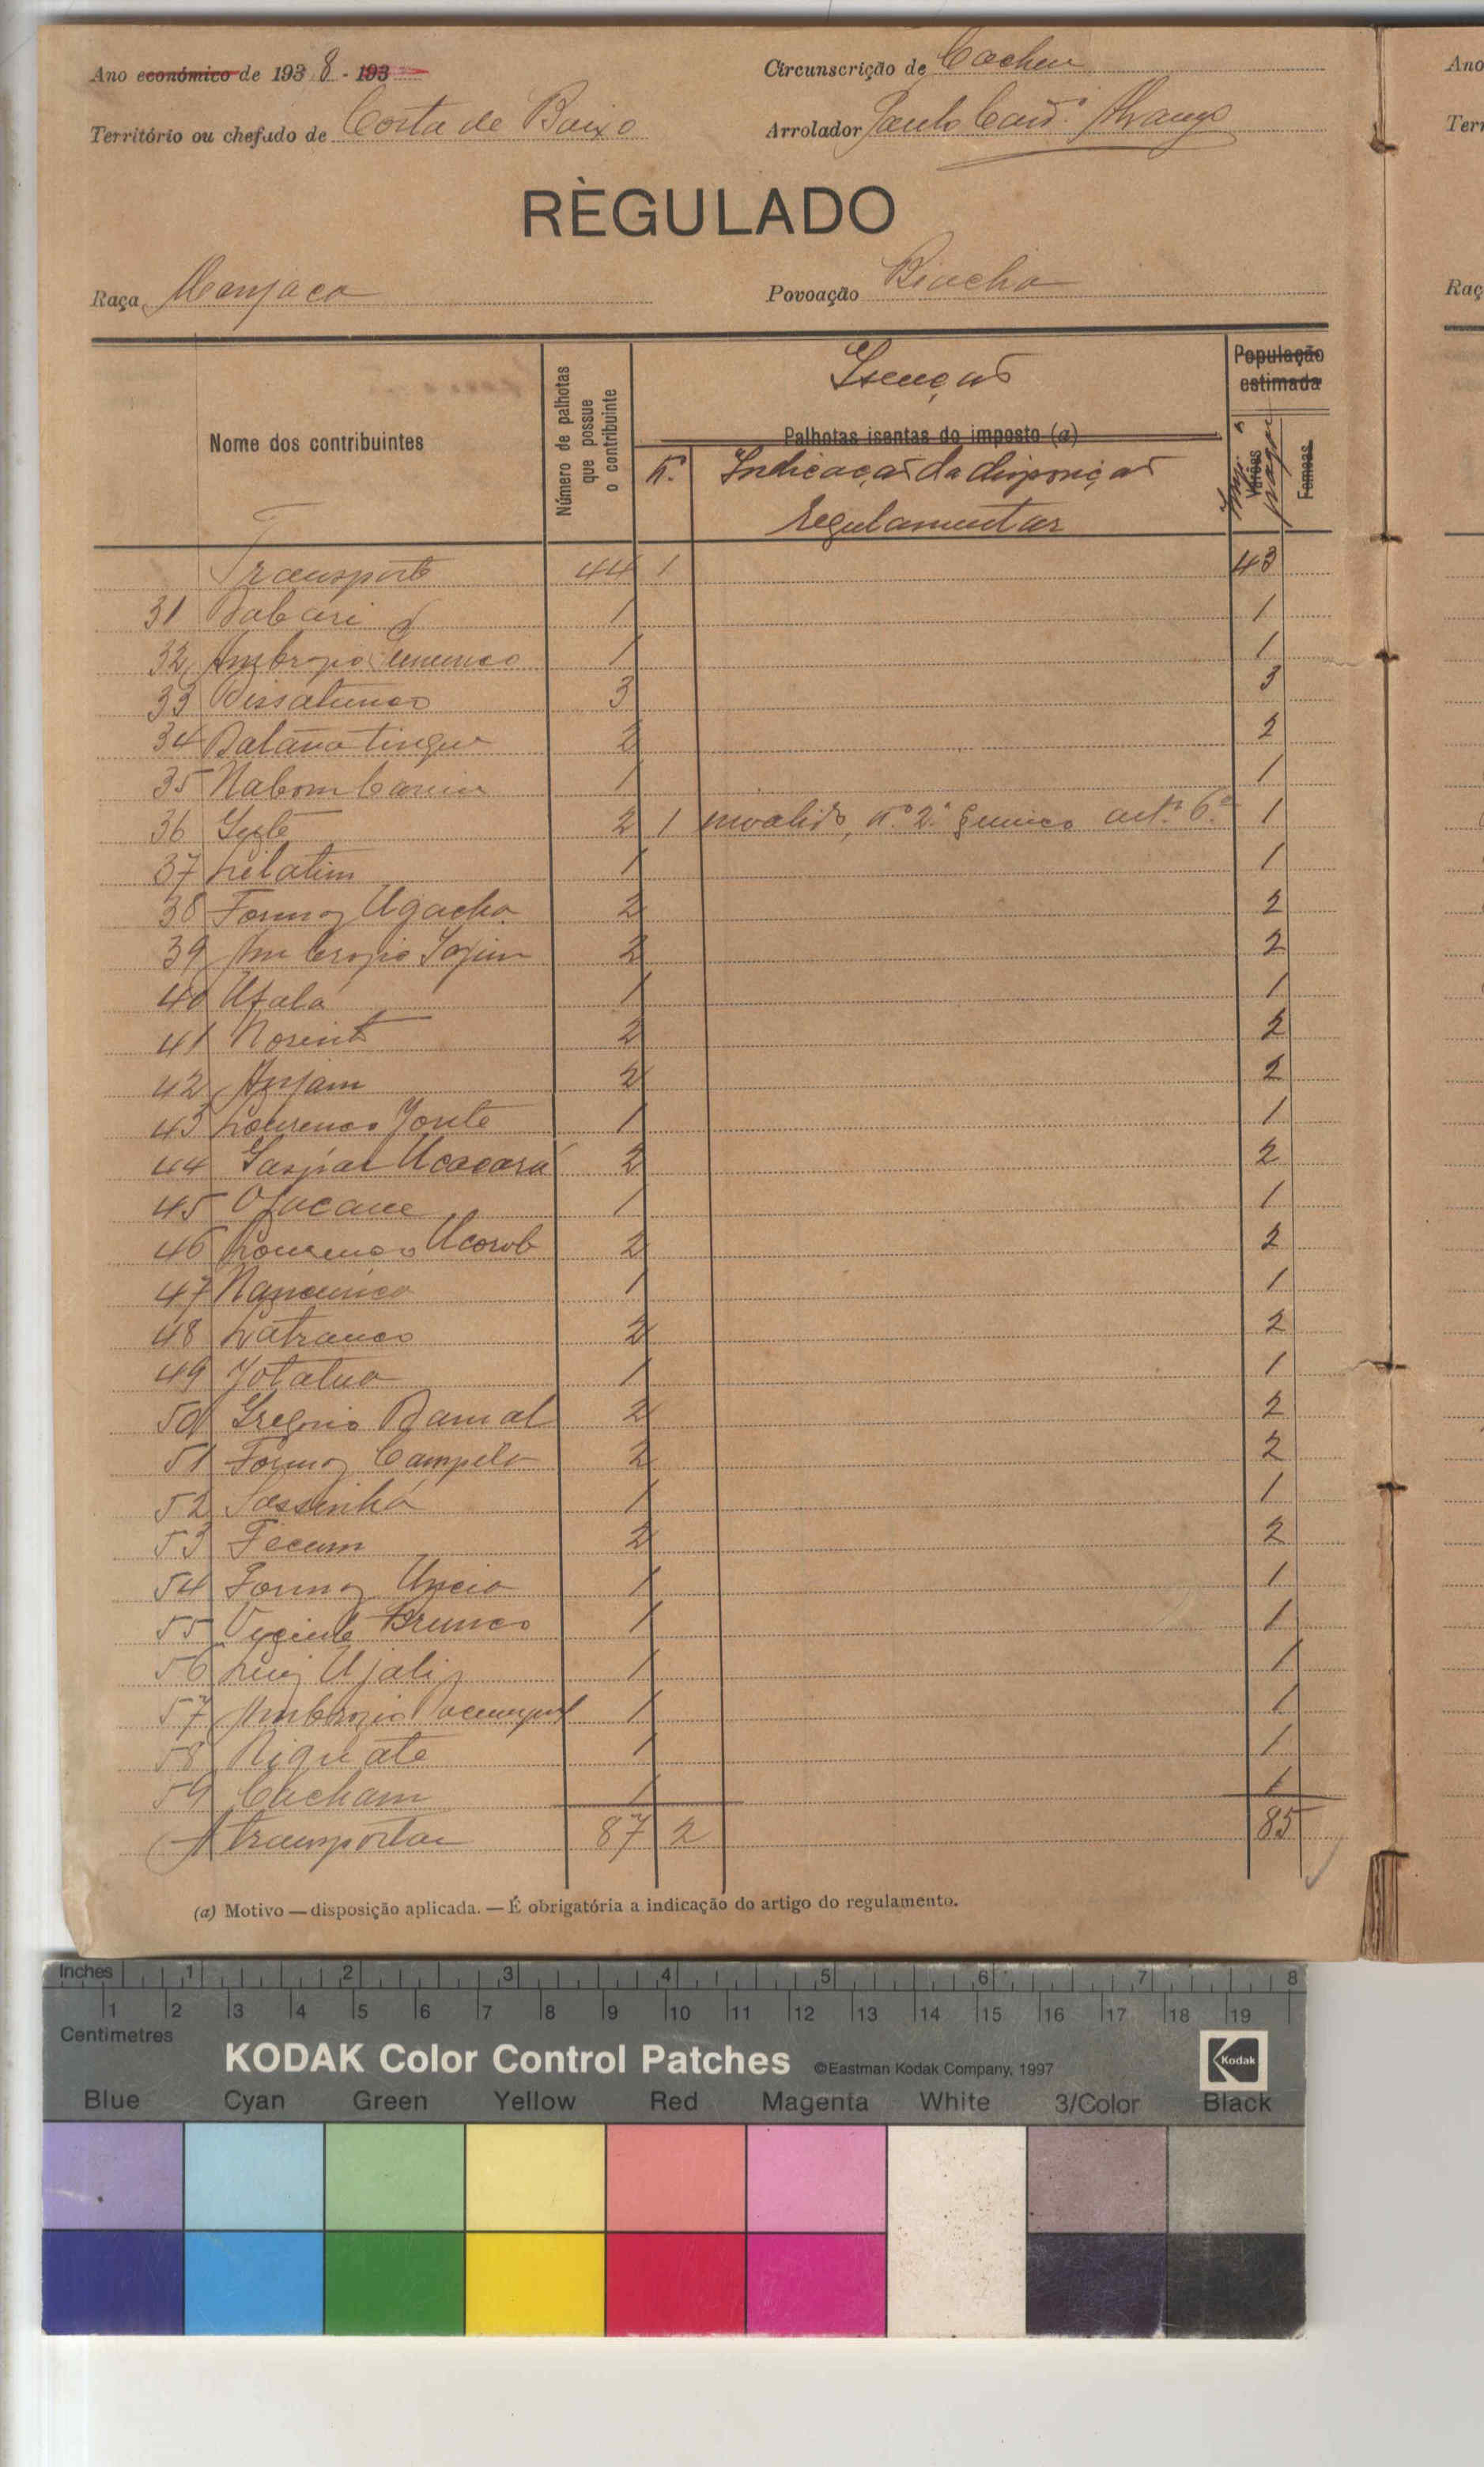 Ano económico de 1938 - 193
Circunscrição de Cacheu
Território ou chefado de Costa de Baixo
Arrolador Paulo
RÈGULADO
Raça Manjaca
Povoação
Nome dos contribuintes
Número de palhotas que possue o contribuinte
Isenção
Palhotas isentas do imposto (a)
N.º Indicação da disposição
regulamentar
População estimada
Varões
Femeas
Transporte 44 1 43
31 Babari 1 1
32 Ambrozio 1 1
33 3 3
34 2 2
35 1 1
36 2 1 invalido, nº 2º § unico artº 6º 1
37 Lilatim 1 1
38 Fermoz Ugacha 2 2
39 Ambrozio 2 2
40 Ufala 1 1
41 2 2
42 Anjam 2 2
43 Lourenço Jonte 1 1
44 Gaspar Ucacará 2 2
45 1 1
46 Lourenço Ucorob 2 2
47 1 1
48 Latranco 2 2
49 1 1
50 Gregorio 2 2
51 Fermoz Campelo 2 2
52 Sassinhá 1 1
53 Fecum 2 2
54 Fermoz 1 1
55 Vicente Brunco 1 1
56 Luiz Ujaliz 1 1
57 Ambrozio 1 1
58 Niquiate 1 1
59 Cacham 1 1
A transportar 87 2 85
(a) Motivo — disposição aplicada. — É obrigatória a indicação do artigo do regulamento.
Ano
Terr
Raç
Inches 1 2 3 4 5 6 7 8
1 2 3 4 5 6 7 8 9 10 11 12 13 14 15 16 17 18 19
Centimetres
KODAK Color Control Patches ©Eastman Kodak Company, 1997 Kodak
Blue Cyan Green Yellow Red Magenta White 3/Color Black